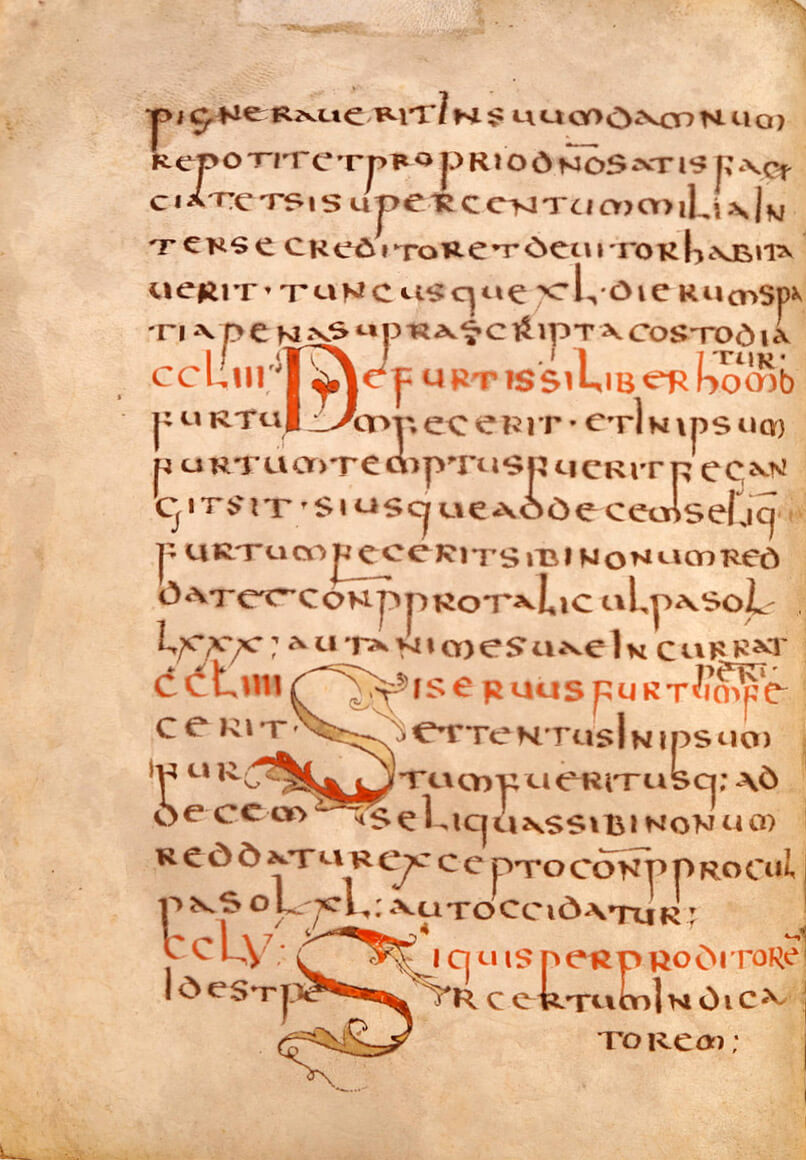 pignerauerit In suum damnum
repotit et proprio dn̄o satis fac
ciat et si super centum milia In
ter se creditor et deuitor habita
uerit · tunc usque XL · dierum spa
tia pena suprascripta costodia
tur ·
CCLIII · De furtis si liber homo
furtum fecerit · et In ipsum
furtum temptus fuerit fegan
git sit · si usque ad decem seliq̄
furtum fecerit sibi nonum red
dat et conp̄p pro tali culpa sol
LXXX ; aut anime suae Incurrat
peri ·
CCLIIII Si seruus furtum fe
cerit · et tentus In ipsum
furtum fuerit usq; ad
decem seliquas sibi nonum
reddatur excepto conp̄p pro cul
pa sol XL ; aut occidatur ;
CCLV : Si quis per proditorē
Id est per certum Indica
torem ;